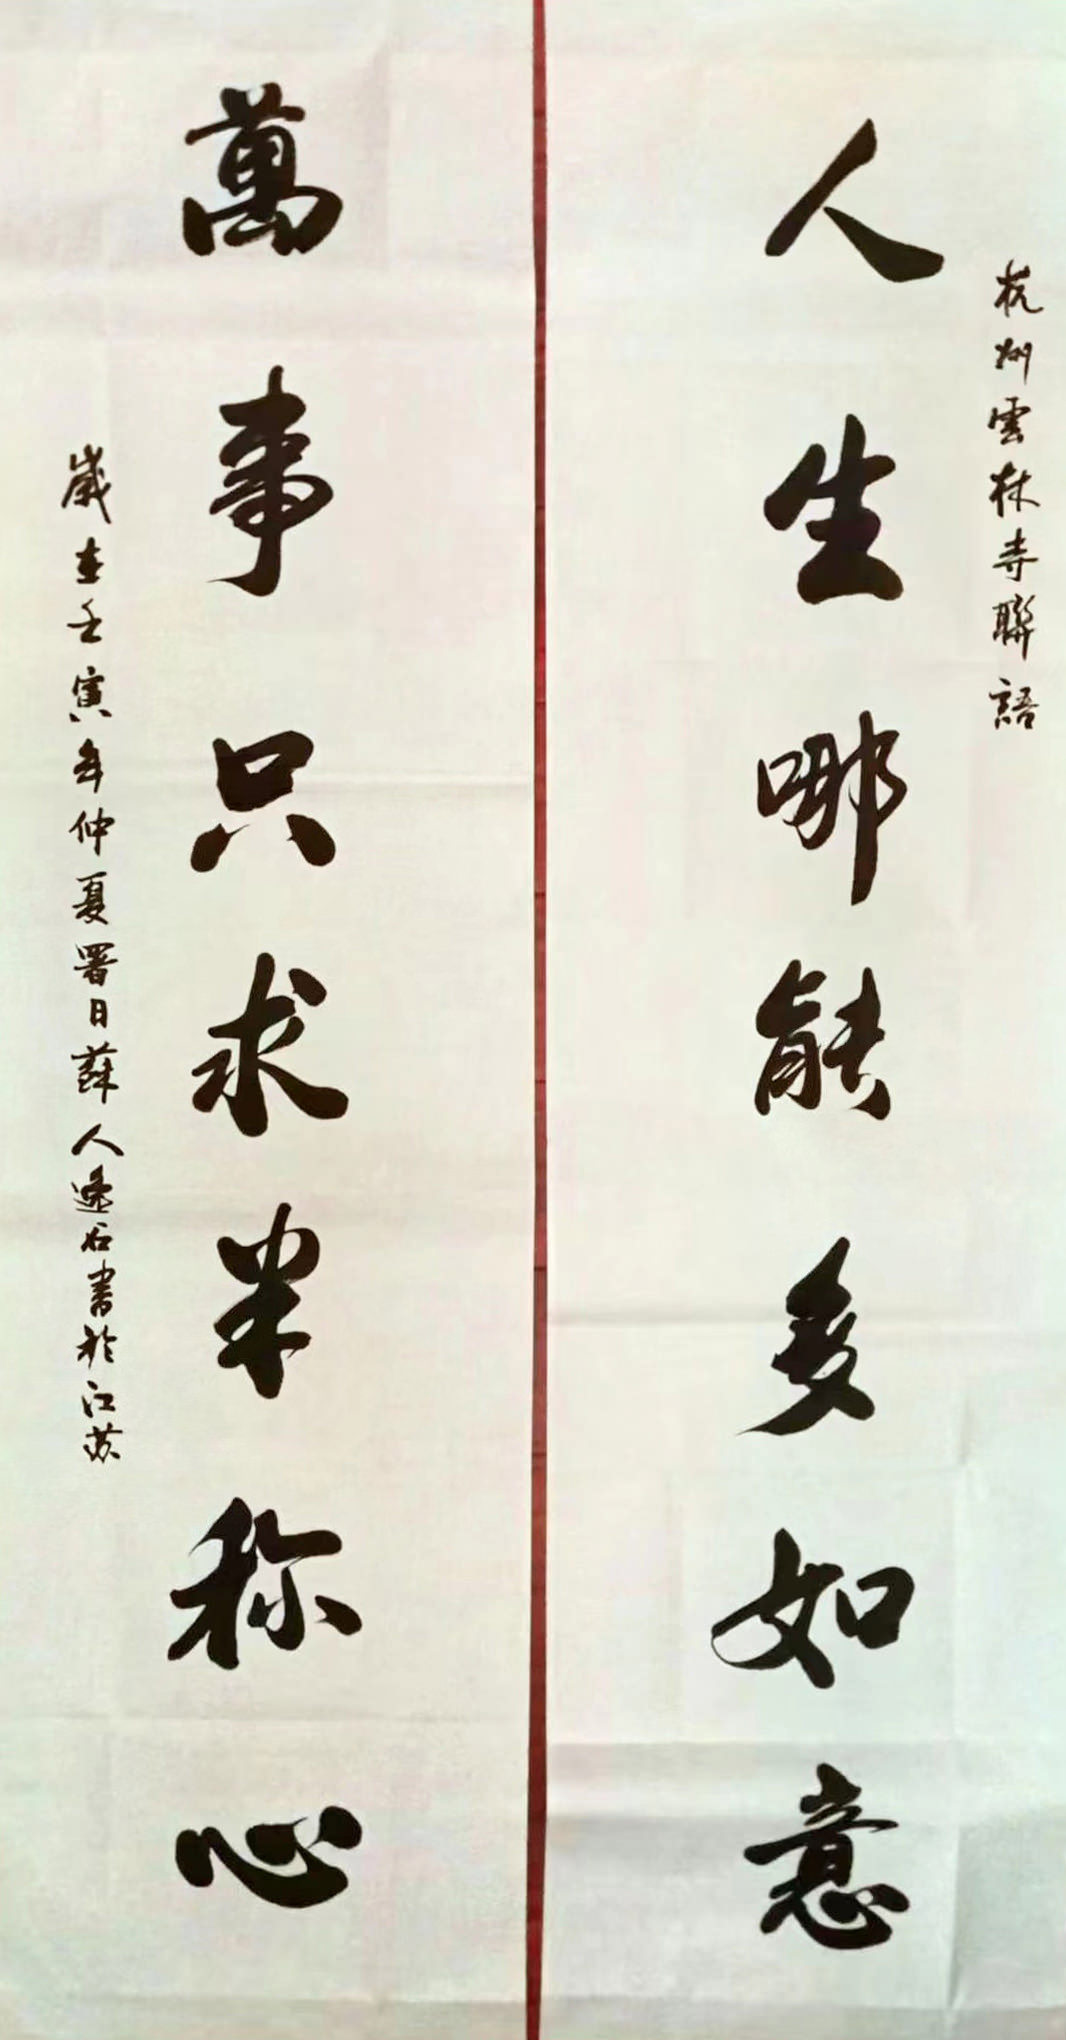 杭州雲林寺聯語
人生哪能多如意
萬事只求半称心
歲在壬寅年仲夏署日蘇人逸石書於江苏